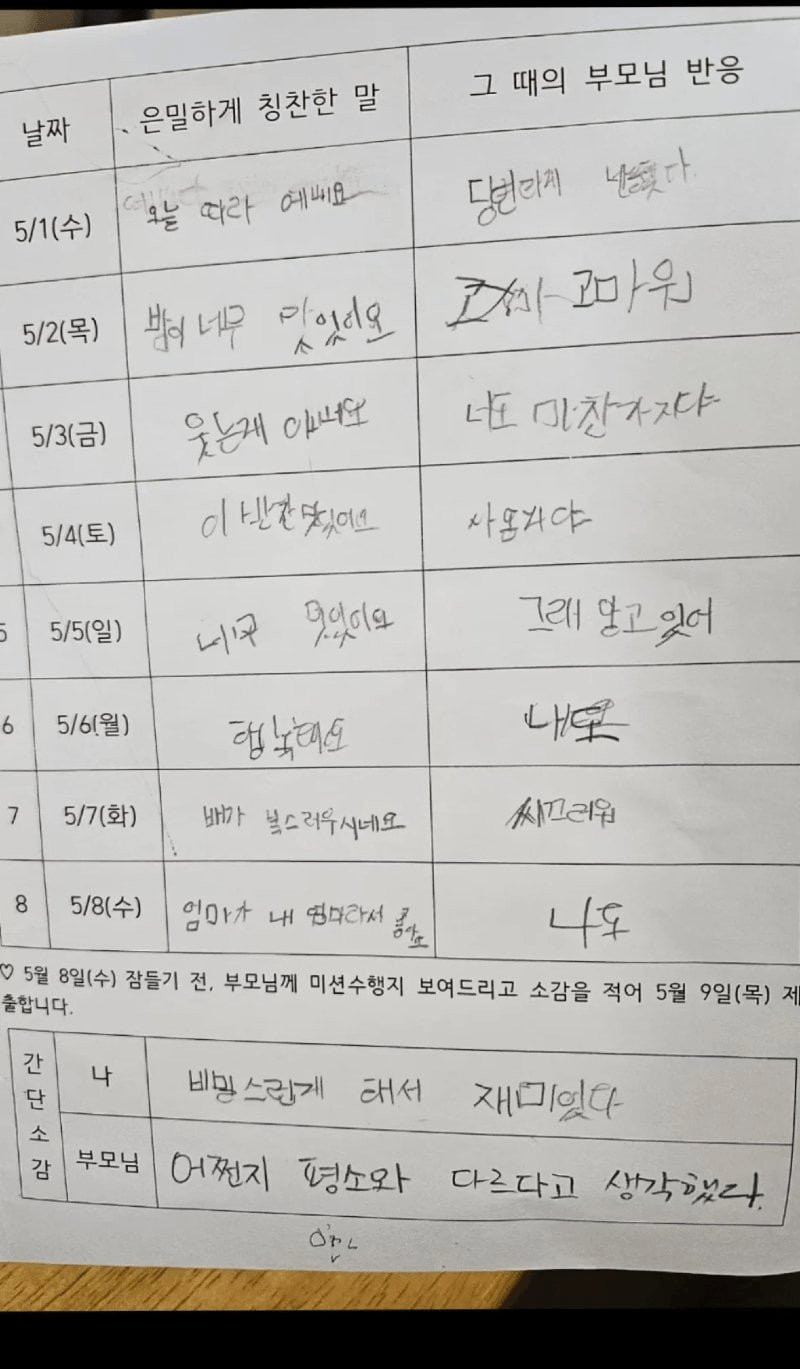 날짜 은밀하게 칭찬한 말 그 때의 부모님 반응
5/1(수) 오늘 따라 예뻐요
5/2(목) 밥이 너무 맛있어요 고마워
5/3(금) 웃는게 너도 마찬가지다
5/4(토) 이
5/5(일) 너무 맛있어요 그래 알고 있어
5/6(월) 행복해요 나도
7 5/7(화) 배가 복스러우시네요 씨끄러워
8 5/8(수) 엄마가 내 엄마라서 좋아요 나도
♡ 5월 8일(수) 잠들기 전, 부모님께 미션수행지 보여드리고 소감을 적어 5월 9일(목) 제
출합니다.
간단소감
나 비밀스럽게 해서 재미있다
부모님 어쩐지 평소와 다르다고 생각했다.